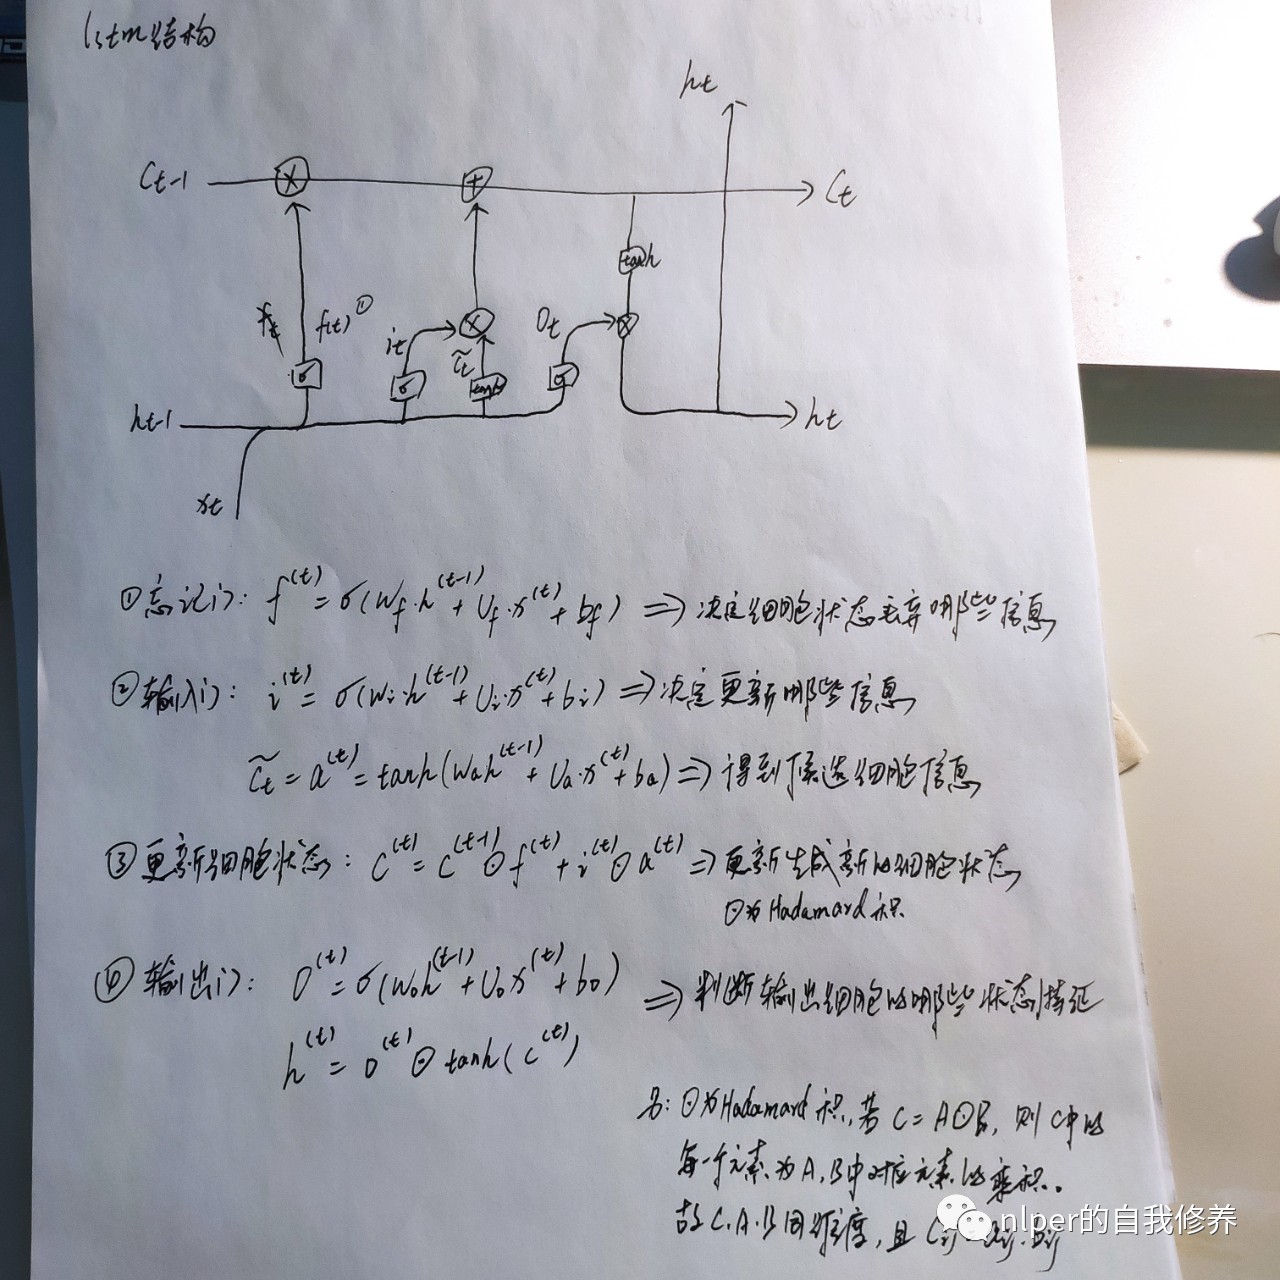 lstm结构
ht
Ct-1
×
+
Ct
tanh
ft
f(t)①
it
×
C̃t
Ot
×
σ
σ
tanh
σ
ht-1
ht
xt
①忘记门: f^(t) = σ(Wf·h^(t-1) + Uf·x^(t) + bf) => 决定细胞状态丢弃哪些信息
②输入门: i^(t) = σ(Wi·h^(t-1) + Ui·x^(t) + bi) => 决定更新哪些信息
C̃t = a^(t) = tanh(Wa h^(t-1) + Ua·x^(t) + ba) => 得到候选细胞信息
③更新细胞状态: C^(t) = C^(t-1) ⊙ f^(t) + i^(t) ⊙ a^(t) => 更新生成新的细胞状态
⊙为Hadamard积
④输出门: O^(t) = σ(Wo h^(t-1) + Uo x^(t) + bo) => 判断输出细胞的哪些状态特征
h^(t) = o^(t) ⊙ tanh(C^(t))
⊙为Hadamard积, 若 C = A⊙B, 则C中的
每一个元素为A,B中对应元素的乘积.
故C.A.B同维度, 且 Cij
nlper的自我修养